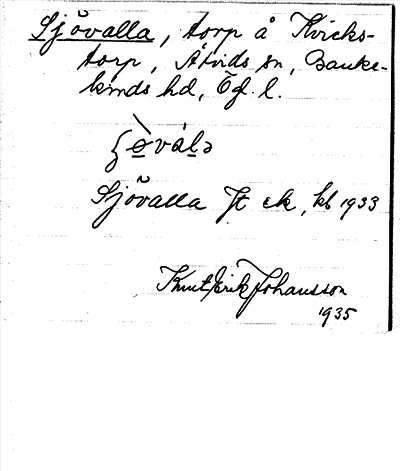 Sjövalla, torp å Kvicks-
torp, Åtvids sn, Banke-
kinds hd, Ög. l.
Sjövalla Jt ek, kb 1933
Knut Erik Johansson
1935